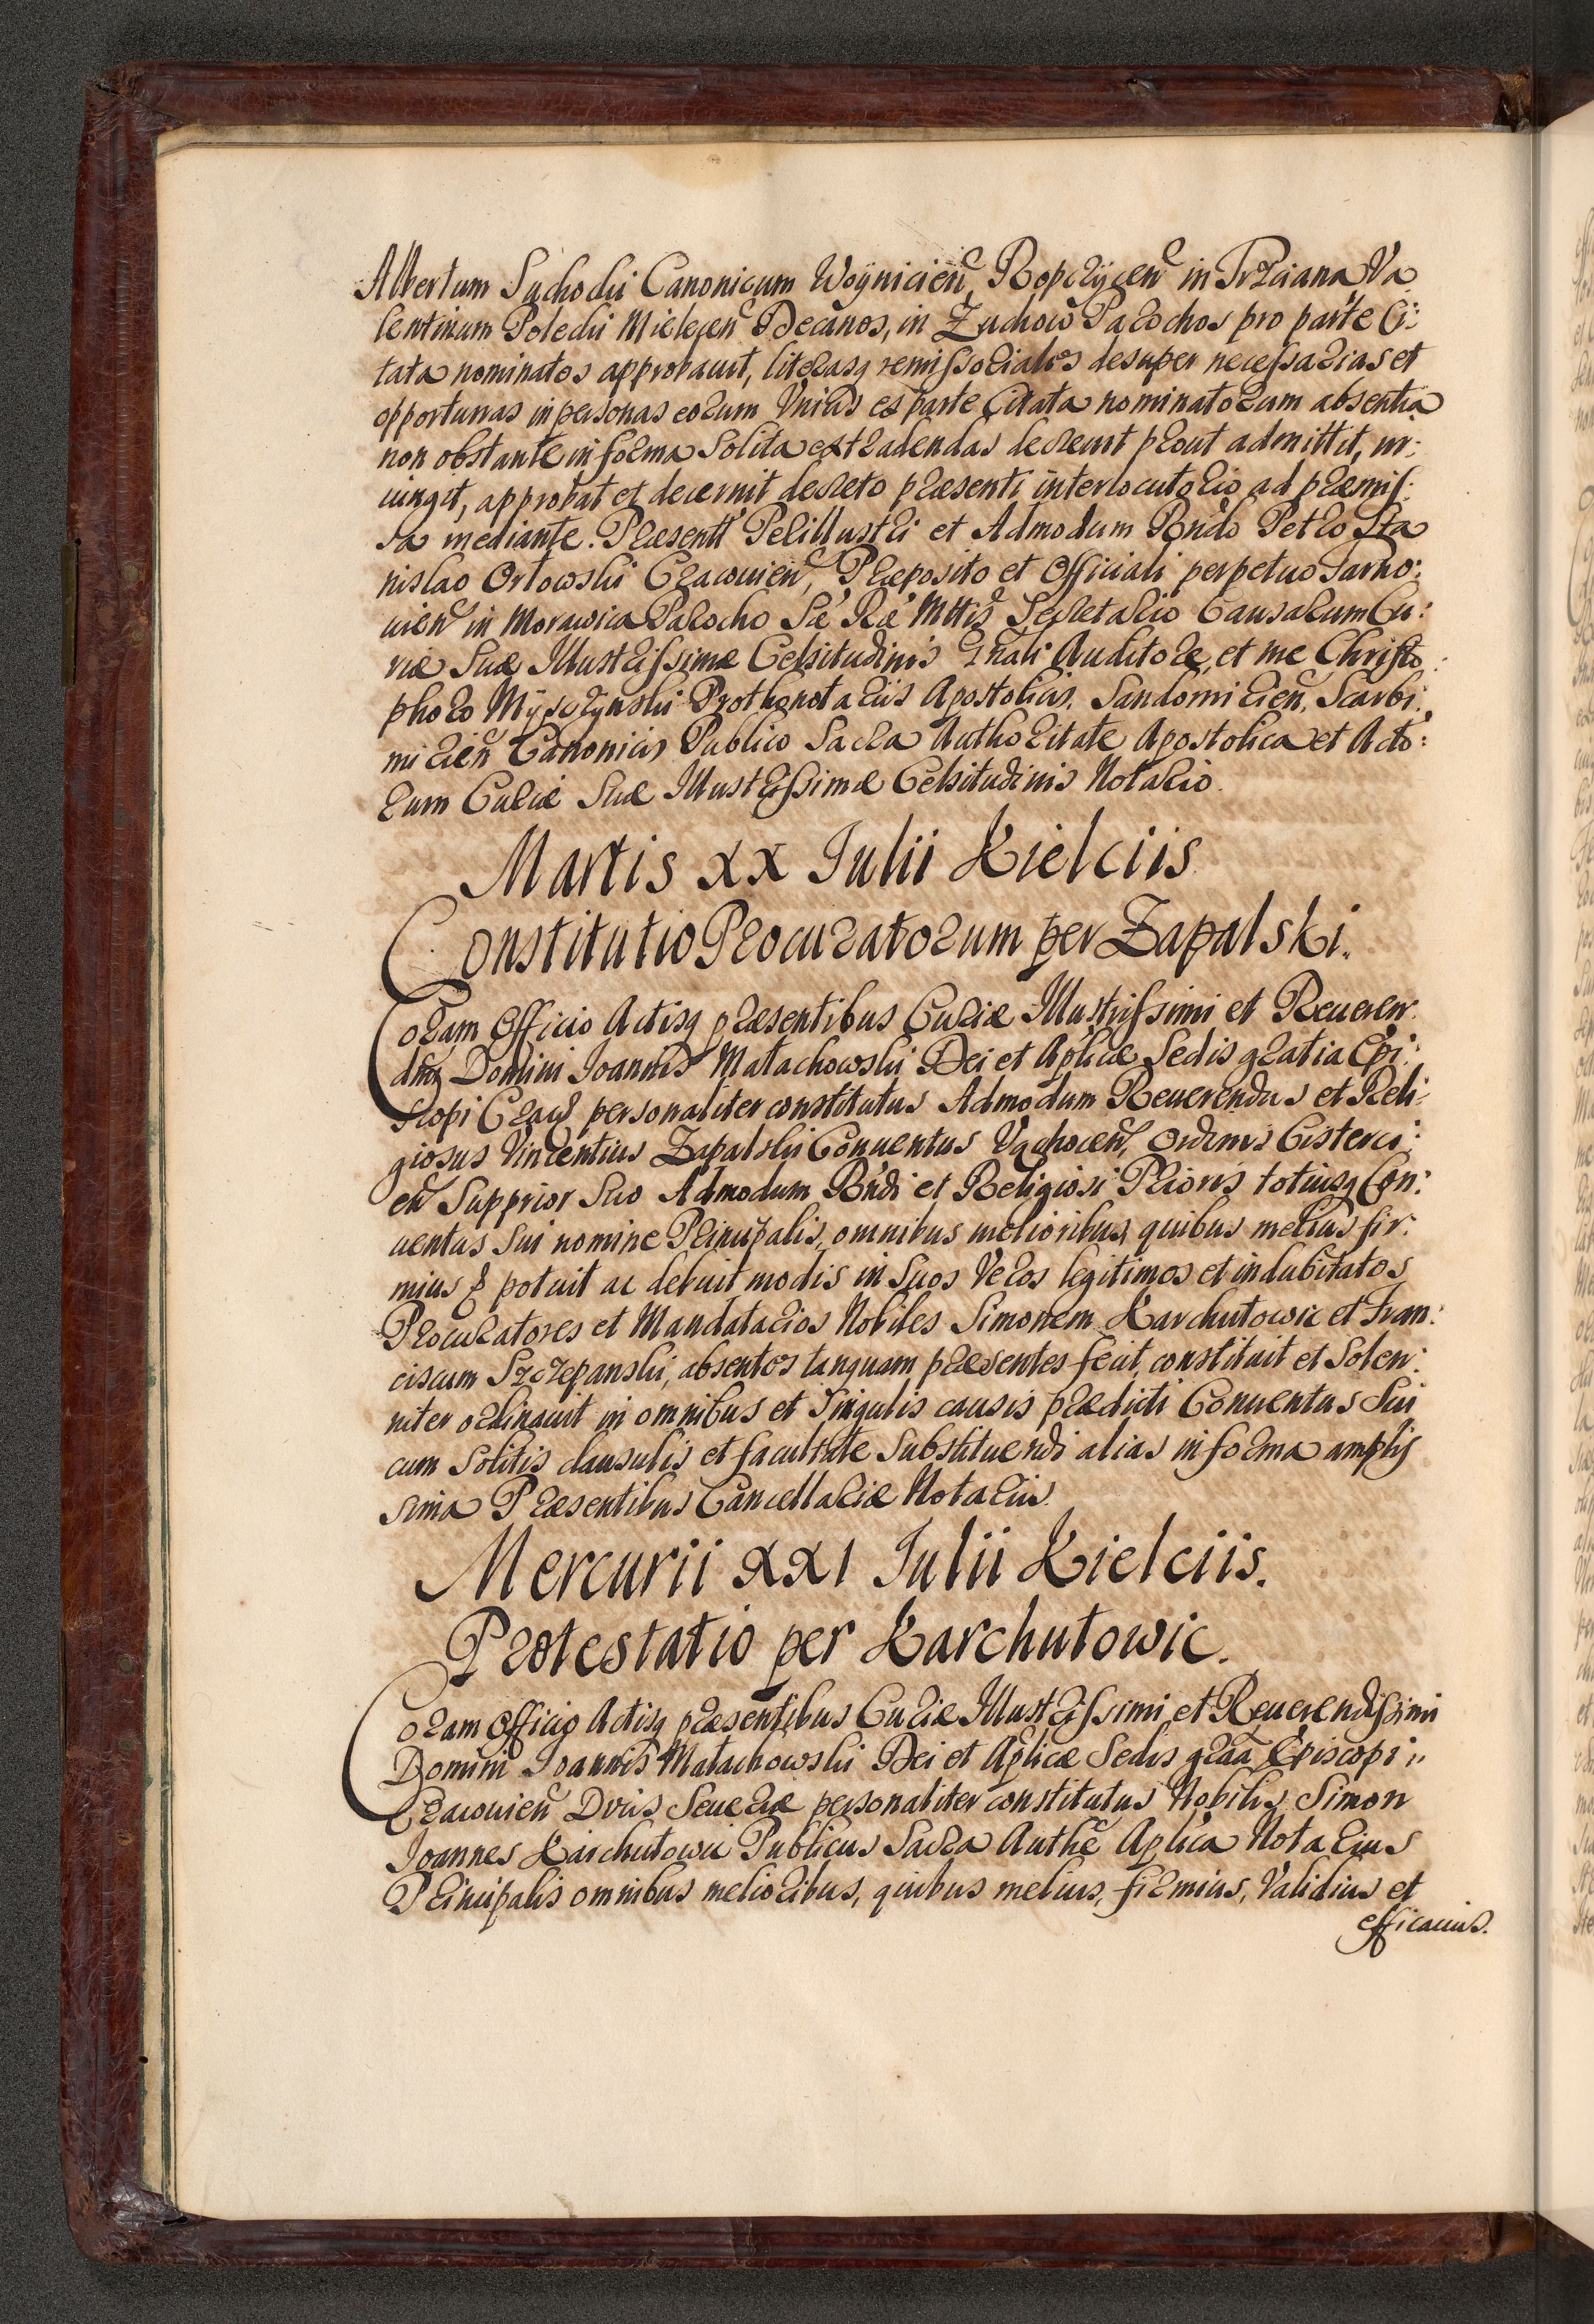 Albertum Suchodii Canonicum Woÿnicień, Ropczÿceń in Trzciana Va
lentinum Poledii Mieleceń Decanos, in Zuchow Parochos pro parte Ci:
tata nominatos approbauit, literasq remissoriales desuper necessarias et
opportunas in personas eorum Unius ex parte Citata nominatorum absentia
non obstante in forma Solita extradendas decreuit prout admittit, in:
iungit, approbat et decernit decreto præsenti interlocutorio ad præmis:
sa mediante. Præsentt Perillustri et Admodum Rǹdo Petro Sta
nislao Orłowski Cracouień, Præposito et Officiali perpetuo Tarno:
uień in Morawica Parocho Sæ Ræ Mttis Secretario Causarum Cu:
riæ Suæ Illustrissimæ Celsitudinis Gnali Auditore, et me Christo:
phoro Mÿsczÿnski Prothonotariis Apostolicis, Sandomirień, Scarbi:
mirień Canonicis Publico Sacra Authoritate Apostolica et Acto:
rum Curiæ Suæ Illustrissimæ Celsitudinis Notario.
Martis XX Iulii Kielciis.
Constitutio Procuratorum per Zapalski.
Coram Officio Actisq præsentibus Curiæ Illustrissimi et Reueren:
dmi Domini Joannis Małachowski Dei et Aplicæ Sedis gratia Epi:
scopi Crac personaliter constitutus Admodum Reuerendus et Reli:
giosus Vincentius Zapalski Conuentus Vąchoceń, Ordinis Cisterci:
eń Supprior Suo Admodum Rńdi et Religiosi Prioris totiusq Con:
uentus Sui nomine Principalis, omnibus melioribus, quibus melius fir:
mius potuit ac debuit modis in Suos Veros legitimos et indubitatos
Procuratores et Mandatarios Nobiles Simonem Karchutowic et Fran:
ciscum Szczepanski, absentes tanquam præsentes fecit, constituit et Solen:
niter ordinauit in omnibus et Singulis causis prædicti Conuentus Sui
cum Solitis clausulis et facultate Substituendi alias in forma amplis
sima Præsentibus Cancellariæ Notariis.
Mercurii XXI Iulii Kielciis.
Protestatio per Karchutowic.
Coram Officio Actisq præsentibus Curiæ Illustrissimi et Reuerendissimi
Domini Joannis Małachowski Dei et Aplicæ Sedis grãa Episcopi
Cracouień Ducis Seueriæ personaliter constitutus Nobilis Simon
Joannes Karchutowic Publicus Sacra Authe Aplica Notarius
Principalis omnibus melioribus, quibus melius, firmius, Validius et
efficacius.